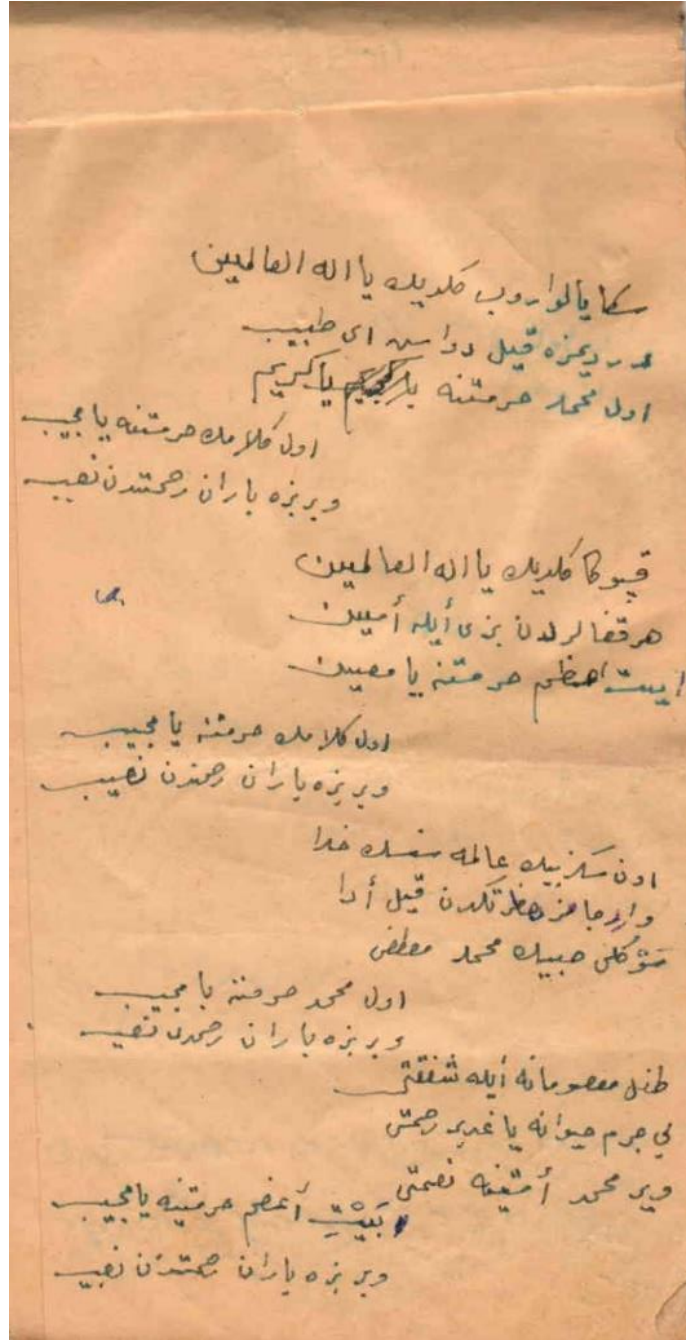 سكا يالواروب كلديك يا اله العالمين
دردیمزه قيل دواسن ای طبيب
اول محمد حرمتنه يا كريم
اول كلامك حرمتنه يا مجيب
وير بزه باران رحمتدن نصيب
قپوكا كلديك يا اله العالمين
هر قضالردن بزی أيله أمين
حرمتنه يا معين
اول كلامك حرمتنه يا مجيب
وير بزه باران رحمتدن نصيب
اون سكز بيك عالمه سنسك خدا
قيل أدا
سَوْكلی حبيبك محمد مصطفی
اول محمد حرمتنه يا مجيب
وير بزه باران رحمتدن نصيب
طفل معصومانه أيله شفقتی
بي جرم حيوانه يا غدير رحمتی
وير محمد أمتينه نصمتی
بَيْتِ أعضم حرمتينه يا مجيب
وير بزه باران رحمتدن نصيب